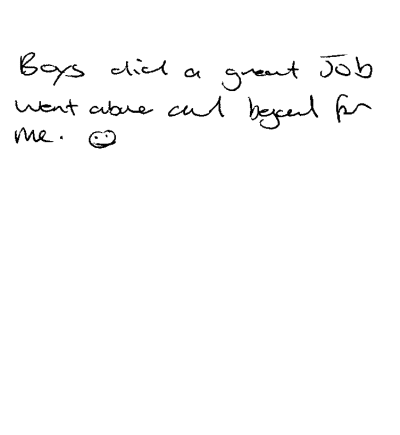 Boys did a great Job
went above and beyond for
me. ☺